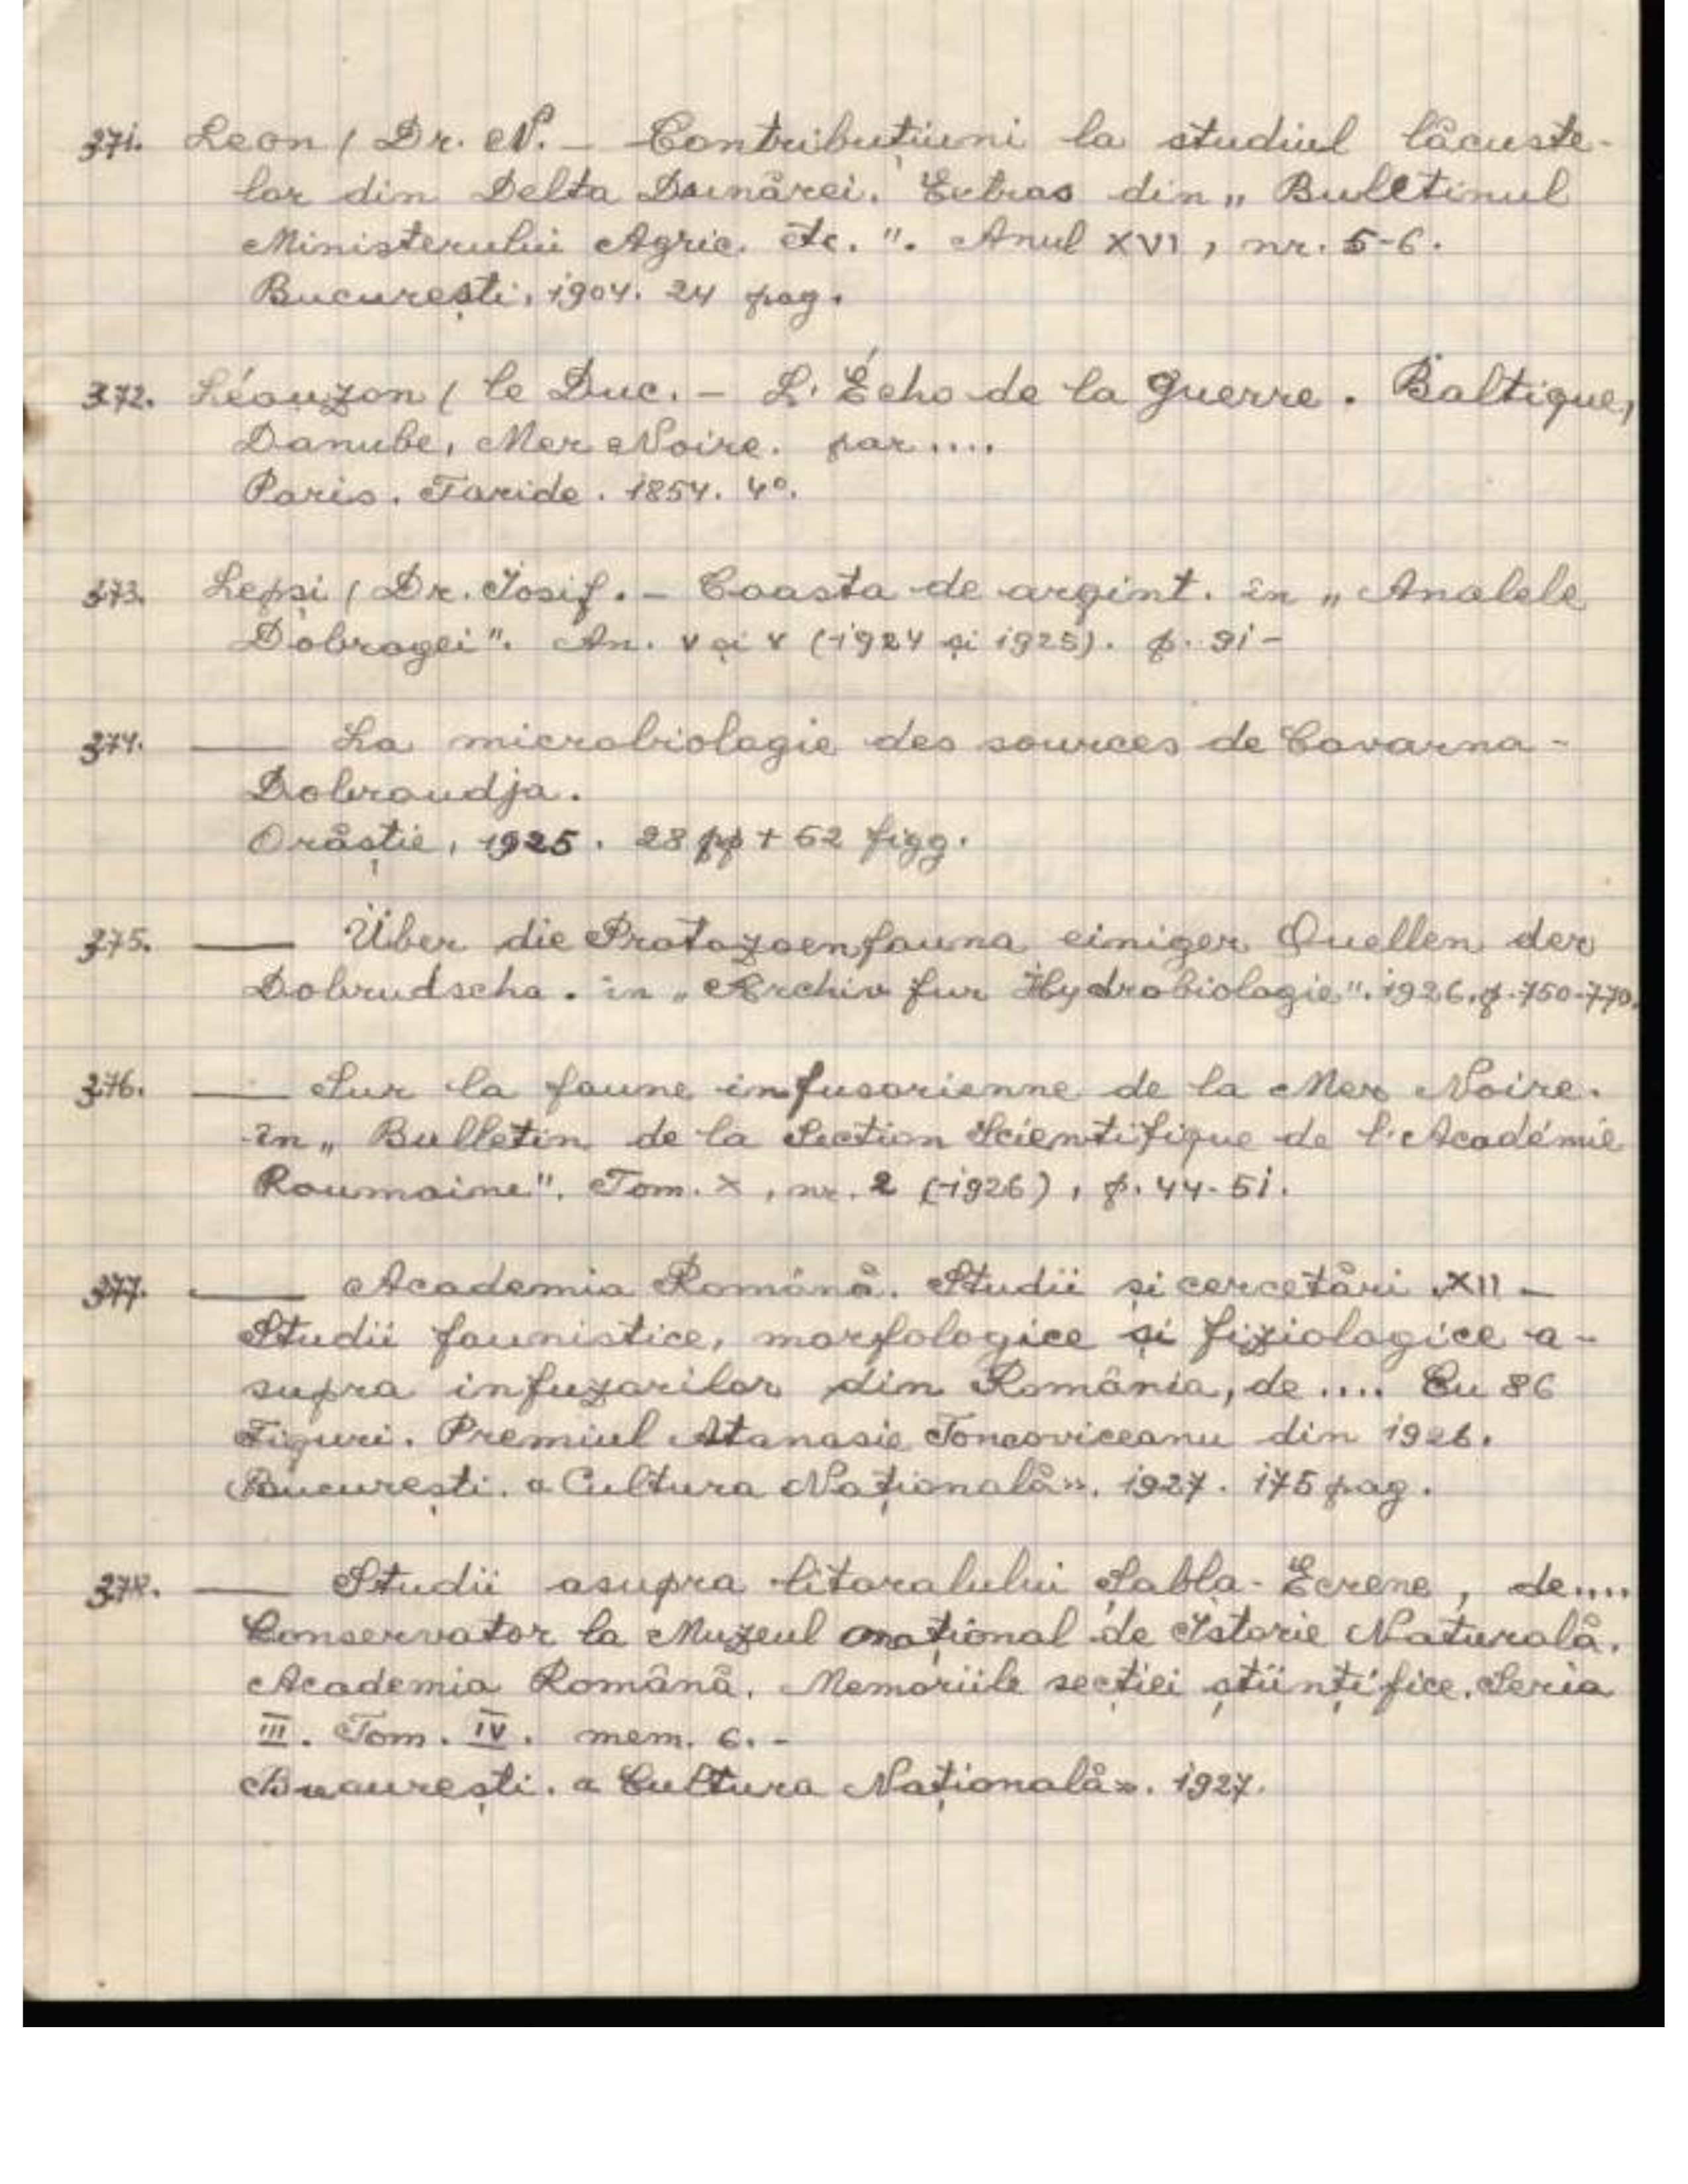 371. Leon / Dr. N. – Contribuțiuni la studiul lăcuste-
lor din Delta Dunărei. Extras din „ Buletinul
Ministerului Agric. etc. ". Anul XVI, nr. 5-6.
București, 1904. 24 pag.
372. Léouzon / le Duc. – L'Écho de la guerre. Baltique,
Danube, Mer Noire. par ....
Paris. Taride. 1854. 4º.
373. Lepsi / Dr. Iosif. – Coasta de argint. în „ Analele
Dobrogei". An. V și V (1924 și 1925). p. 91-
374. —— La microbiologie des sources de Cavarna-
Dobroudja.
Orăștie, 1925. 28 pp + 62 figg.
375. —— Über die Protozoenfauna einiger Quellen der
Dobrudscha. in „Archiv fur Hydrobiologie". 1926. p. 750-770.
376. —— Sur la faune infusorienne de la Mer Noire.
în „ Bulletin de la Section Scientifique de l'Académie
Roumaine". Tom. X, nr. 2 (1926), p. 44-51.
377. —— Academia Română. Studii și cercetări XII –
Studii faunistice, morfologice și fiziologice a-
supra infuzorilor din România, de .... Cu 86
Figuri. Premiul Atanasie Toncoviceanu din 1926.
București. «Cultura Națională». 1927. 175 pag.
378. —— Studii asupra litoralului Șabla-Ecrene, de ....
Conservator la Muzeul național de Istorie Naturală.
Academia Română. Memoriile secției științifice. Seria
III. Tom. IV. mem. 6. -
București. «Cultura Națională». 1927.